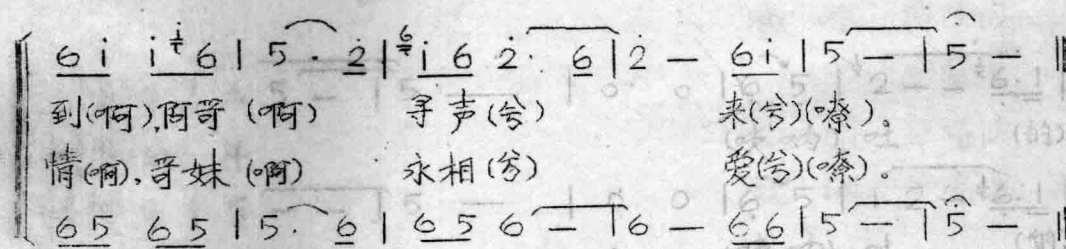 6 i i 6 | 5 · 2̇ | i 6 2̇· 6 | 2̇ — 6 i | 5 — | 5 — ‖
到(啊),阿哥(啊) 寻声(兮) 来(兮)(嘹)。
情(啊),哥妹(啊) 永相(兮) 爱(兮)(嘹)。
6 5 6 5 | 5· 6 | 6 5 6 — | 6 — 6 6 | 5 — | 5 — ‖